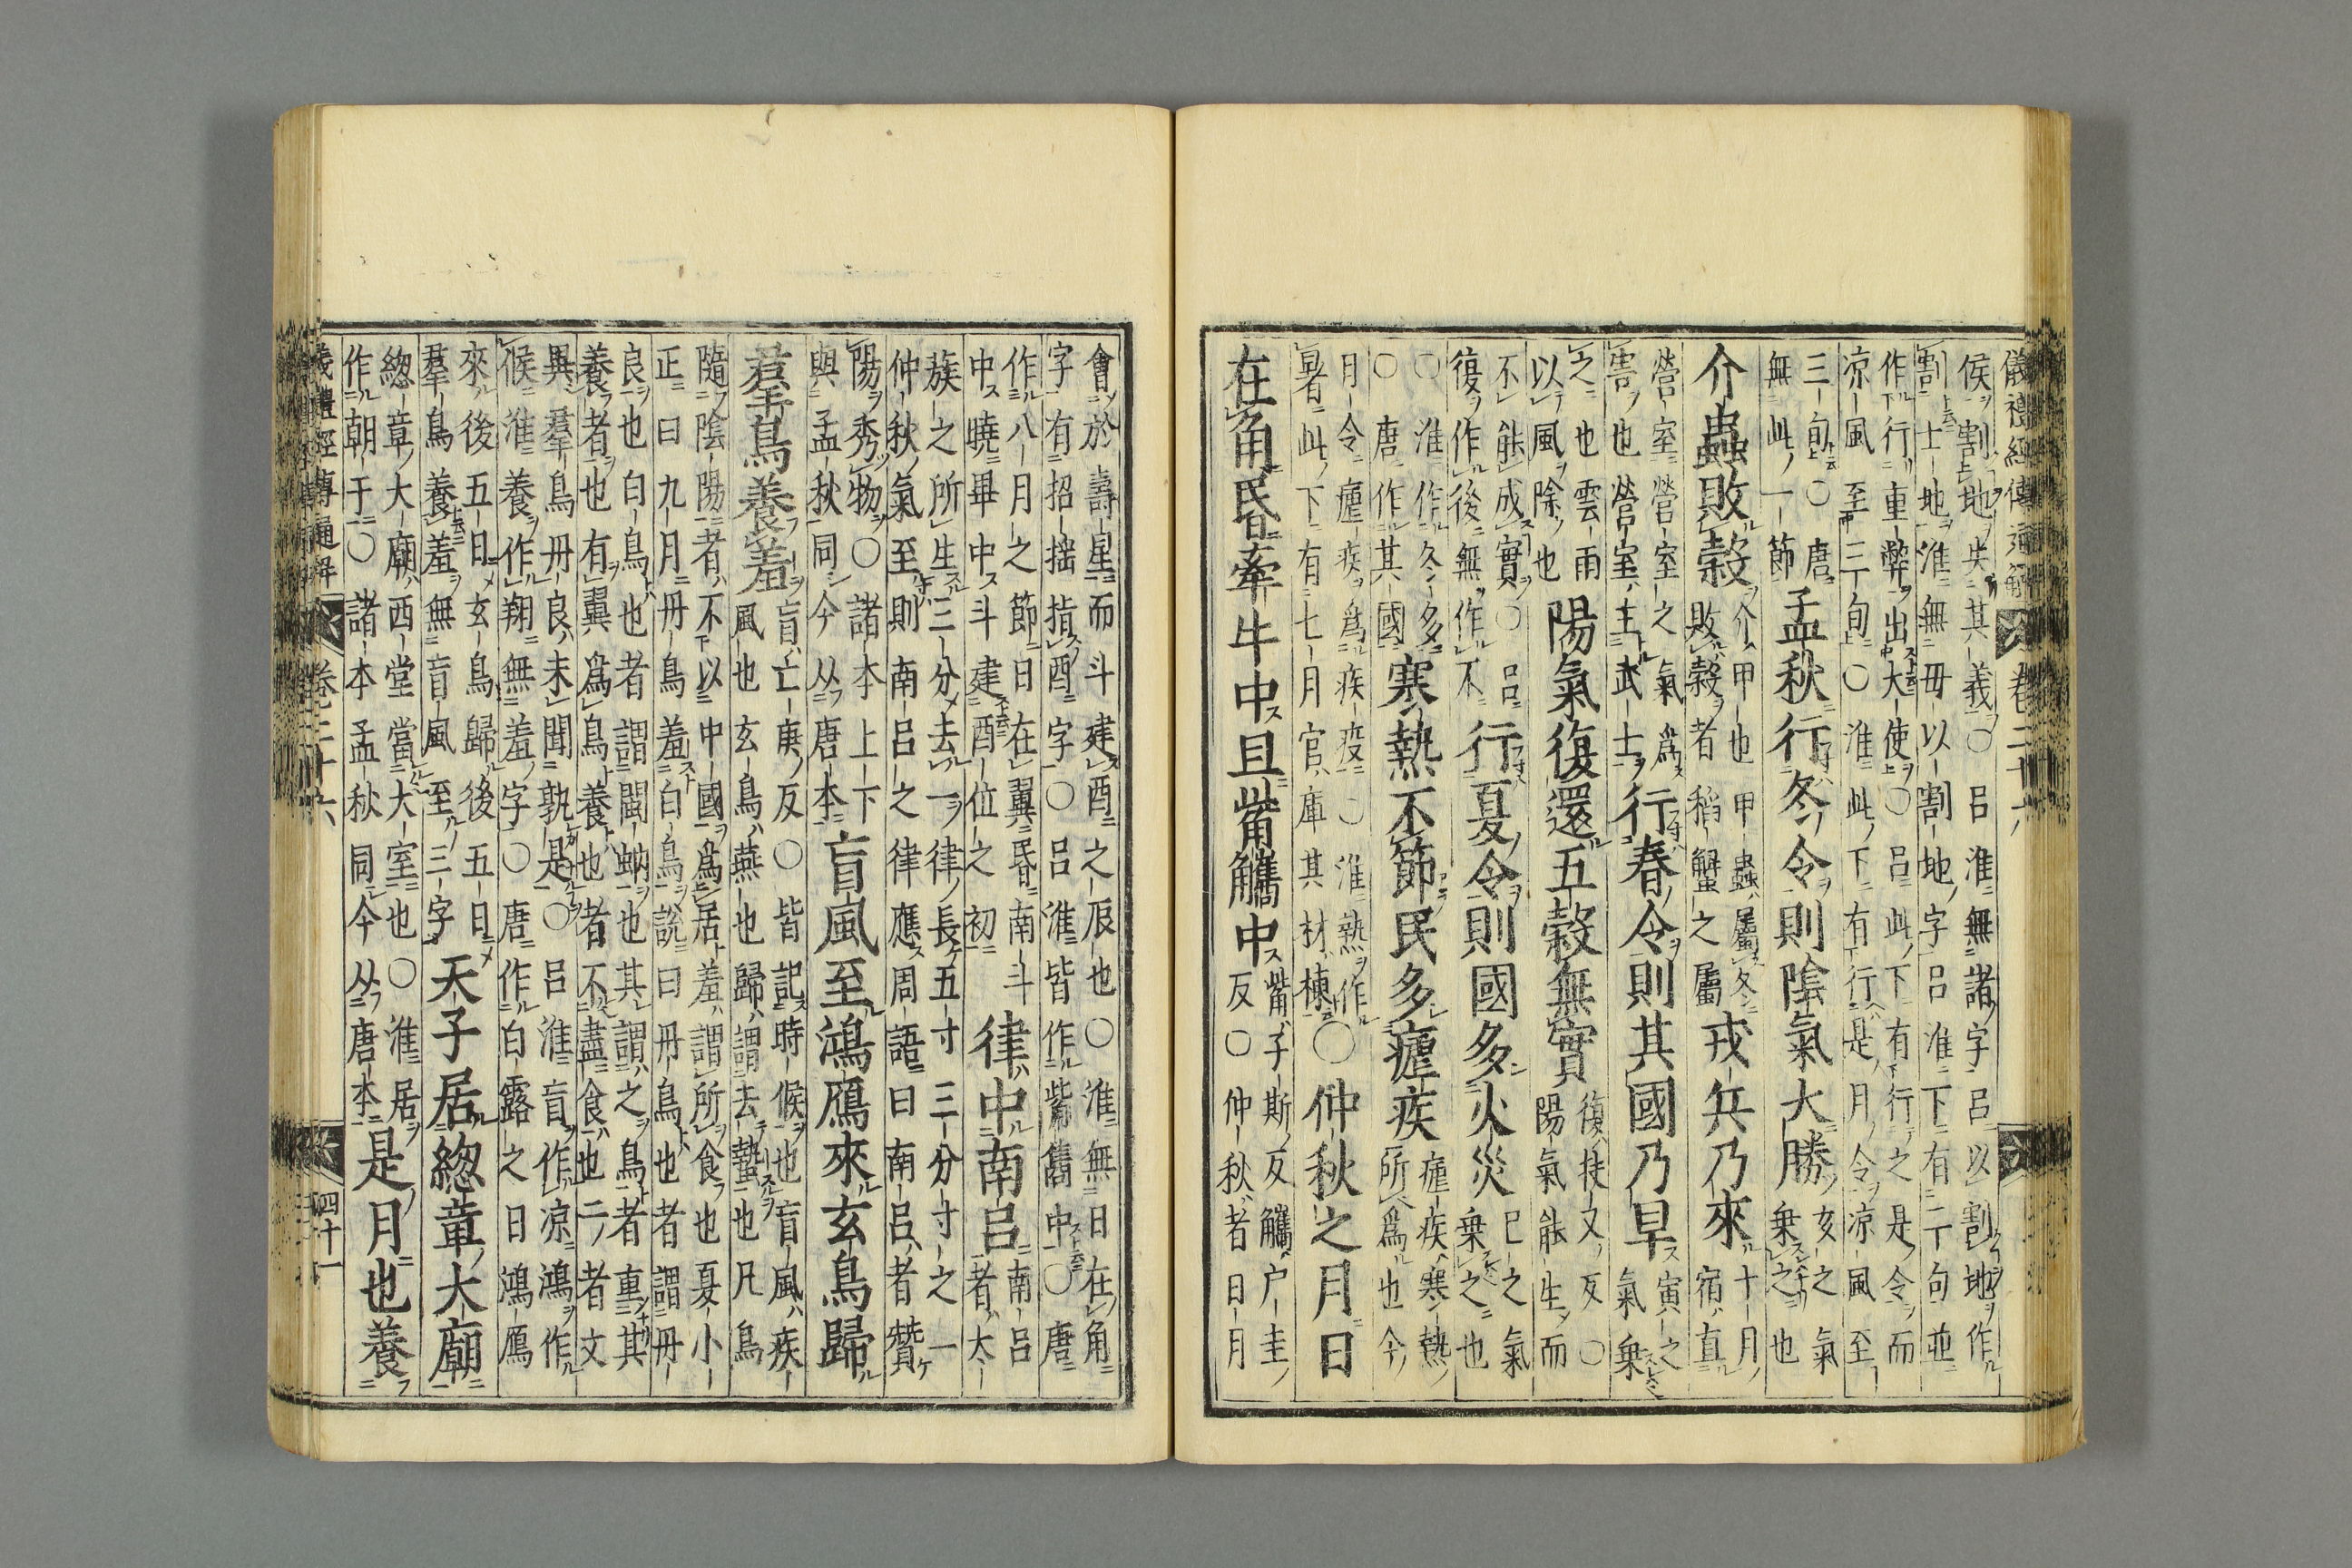 儀禮經傳通解 卷二十六
侯割地失其義〇呂淮無諸字呂以割地作
割土地淮無毋以割地字呂淮下有二句並
作行重幣出大使〇呂此下有行之是令而
凉風至三旬〇淮此下有行是月令凉風至
三旬〇唐
無此一節
孟秋行冬令則陰氣大勝
亥之氣
乗之也
介蟲敗穀
介甲也甲蟲屬冬
敗穀者稻蟹之屬
戎兵乃來
十月
宿直
營室營室之氣爲
害也營室主武士
行春令則其國乃旱
寅之
氣乗
之也雲雨
以風除也
陽氣復還五穀無實
復扶又反〇
陽氣能生而
不能成實〇呂
復作後無作不
行夏令則國多火災
巳之氣
乗之也
〇淮作冬多
〇唐作其國
寒熱不節民多瘧疾
瘧疾寒熱
所爲也今
月令瘧疾爲疾疫〇淮熱作
暑此下有七月官庫其材楝
〇仲秋之月日
在角昏牽牛中旦觜觿中
觜子斯反觿户圭
反〇仲秋者日月
會於壽星而斗建酉之辰也〇淮無日在角
字有招揺指酉字〇呂淮皆作觜雟中〇唐
作八月之節日在翼昏南斗
中曉畢中斗建酉位之初
律中南呂
南呂
者太
族之所生三分去一律長五寸三分寸之一
仲秋氣至則南呂之律應周語曰南呂者贊
陽秀物〇諸本上下
與孟秋同今从唐本
盲風至鴻鴈來玄鳥歸
羣鳥養羞
盲亡庚反〇皆記時候也盲風疾
風也玄鳥燕也歸謂去蟄也凡鳥
隨陰陽者不以中國爲居羞謂所食也夏小
正曰九月丹鳥羞白鳥説曰丹鳥也者謂丹
良也白鳥也者謂閩蚋也其謂之鳥者重其
養者也有翼爲鳥養也者不盡食也二者文
異羣鳥丹良未聞孰是〇呂淮盲作凉鴻作
候淮養作翔無羞字〇唐作白露之日鴻鴈
來後五日玄鳥歸後五日
羣鳥養羞無盲風至三字
天子居緫章大廟
緫章大廟西堂當大室也〇淮居
作朝于〇諸本孟秋同今从唐本
是月也養
儀禮經傳通解 卷二十六 四十一